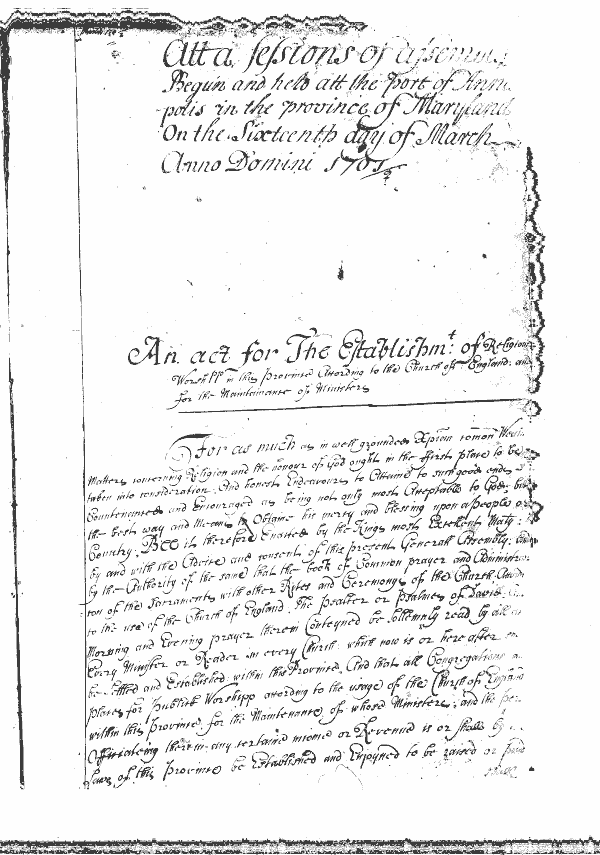 Att a sessions of assem
Begun and held att the port of Ann
polis in the province of Maryland
On the Sixteenth day of March
Anno Domini 1701/2
An act for The Establishmt: of Religious
Worshipp in this Province According to the Church of England: and
for the Maintenance of Ministers
Forasmuch as in well grounded Xptian Comon Weal
Matters concerning Religion and the honour of God ought in the ffirst place to be
taken into consideration And honest Endeavours to Attaine to such good ends
Countenanced and Encouraged as being not only most Acceptable to God, but
the best way and Meanes to Obtaine his mercy and blessing upon a people or
Country. Bee it therefore Enacted by the Kings most Excellent Maty:
by and with the Advice and consent of this present Generall Assembly, and
by the Authority of the same that the book of Common prayer and Administra
tion of the Sacraments with other Rites and Ceremonys of the Church
to the use of the Church of England, the psalter or psalmes of David
Morning and Evening prayer therein Conteyned be sollemnly read by all
Every Minister or Reader in every Church which now is or here after
be settled and Established within this Province And that all Congregations
places for publick Worshipp according to the usage of the Church of England
within this Province for the Maintenance of whose Ministers and the per
Officiateing therein any certaine income or Revenue is or shall by
Laws of this Province be Established and Enjoyned to be raised or paid
shall